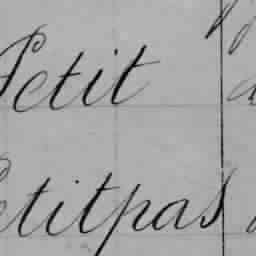 Petit
etitpas